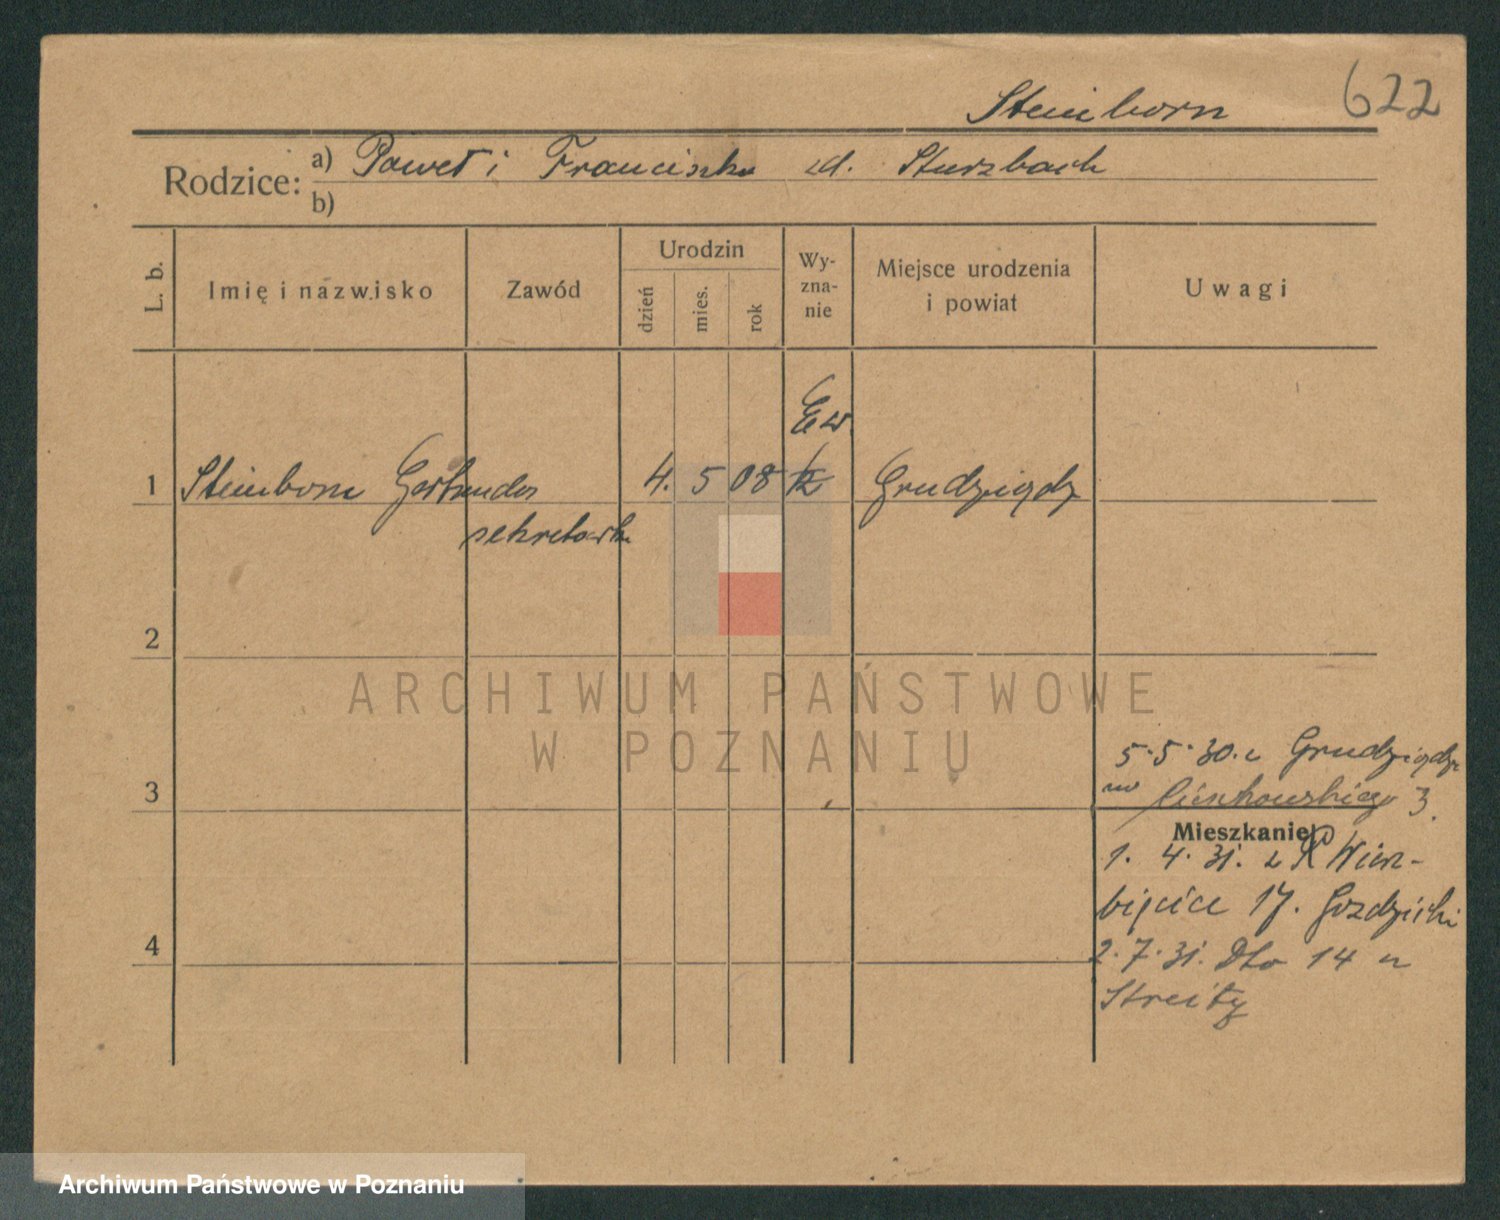 Steinborn 622
Rodzice: a) Paweł i Franciszka zd. Sturzbach
b)
L. b. Imię i nazwisko Zawód Urodzin dzień mies. rok Wy-
zna-
nie Miejsce urodzenia
i powiat Uwagi
Ew.
1 Steinborn Gertruda 4. 5 08 k Grudziądz
sekretarka
2
ARCHIWUM PAŃSTWOWE
W POZNANIU
5.5.30. z Grudziądza
3 3.
Mieszkanie
1. 4. 31. z Wierz-
bięcice 17. Gozdzicki
4 2.7.31. Dto 14 u
Streity
Archiwum Państwowe w Poznaniu